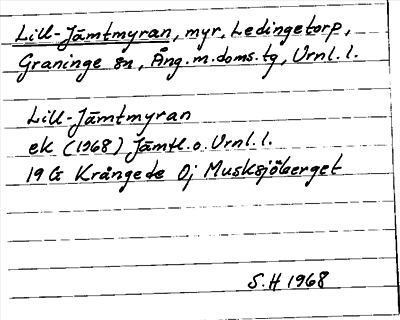 Lill-Jämtmyran, myr, Ledingetorp,
Graninge sn, Ång.m.doms.tg, Vrnl.l.
Lill-Jämtmyran
ek (1968) Jämtl.o.Vrnl.l.
19 G Krångede 0j Musksjöberget
S.H 1968